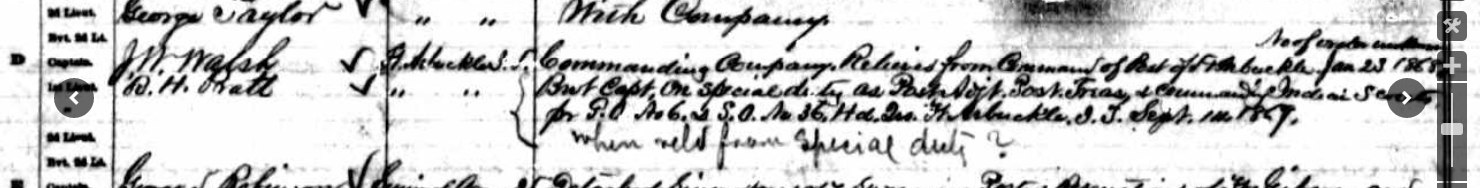 2d Lieut. George Taylor ✓ " " With Company.
Bvt. 2d Lt.
No of order unknown
D Captain. J. W. Walsh ✓ Ft. Arbuckle I. T. Commanding Company. Relieved from Command of Post of Ft Arbuckle. Jan 23 1868
1st Lieut. R. H. Pratt ✓ " " Bvt Capt. On special duty as Post Adjt. Post Treas, & Command'g Indian Scouts,
" pr G.O. No 6. & S.O. No 36, Hd. Qrs. Ft. Arbuckle, I. T. Sept. 1867.
2d Lieut. When reld from special duty?
Bvt. 2d Lt.
Captain. George Robinson ✓